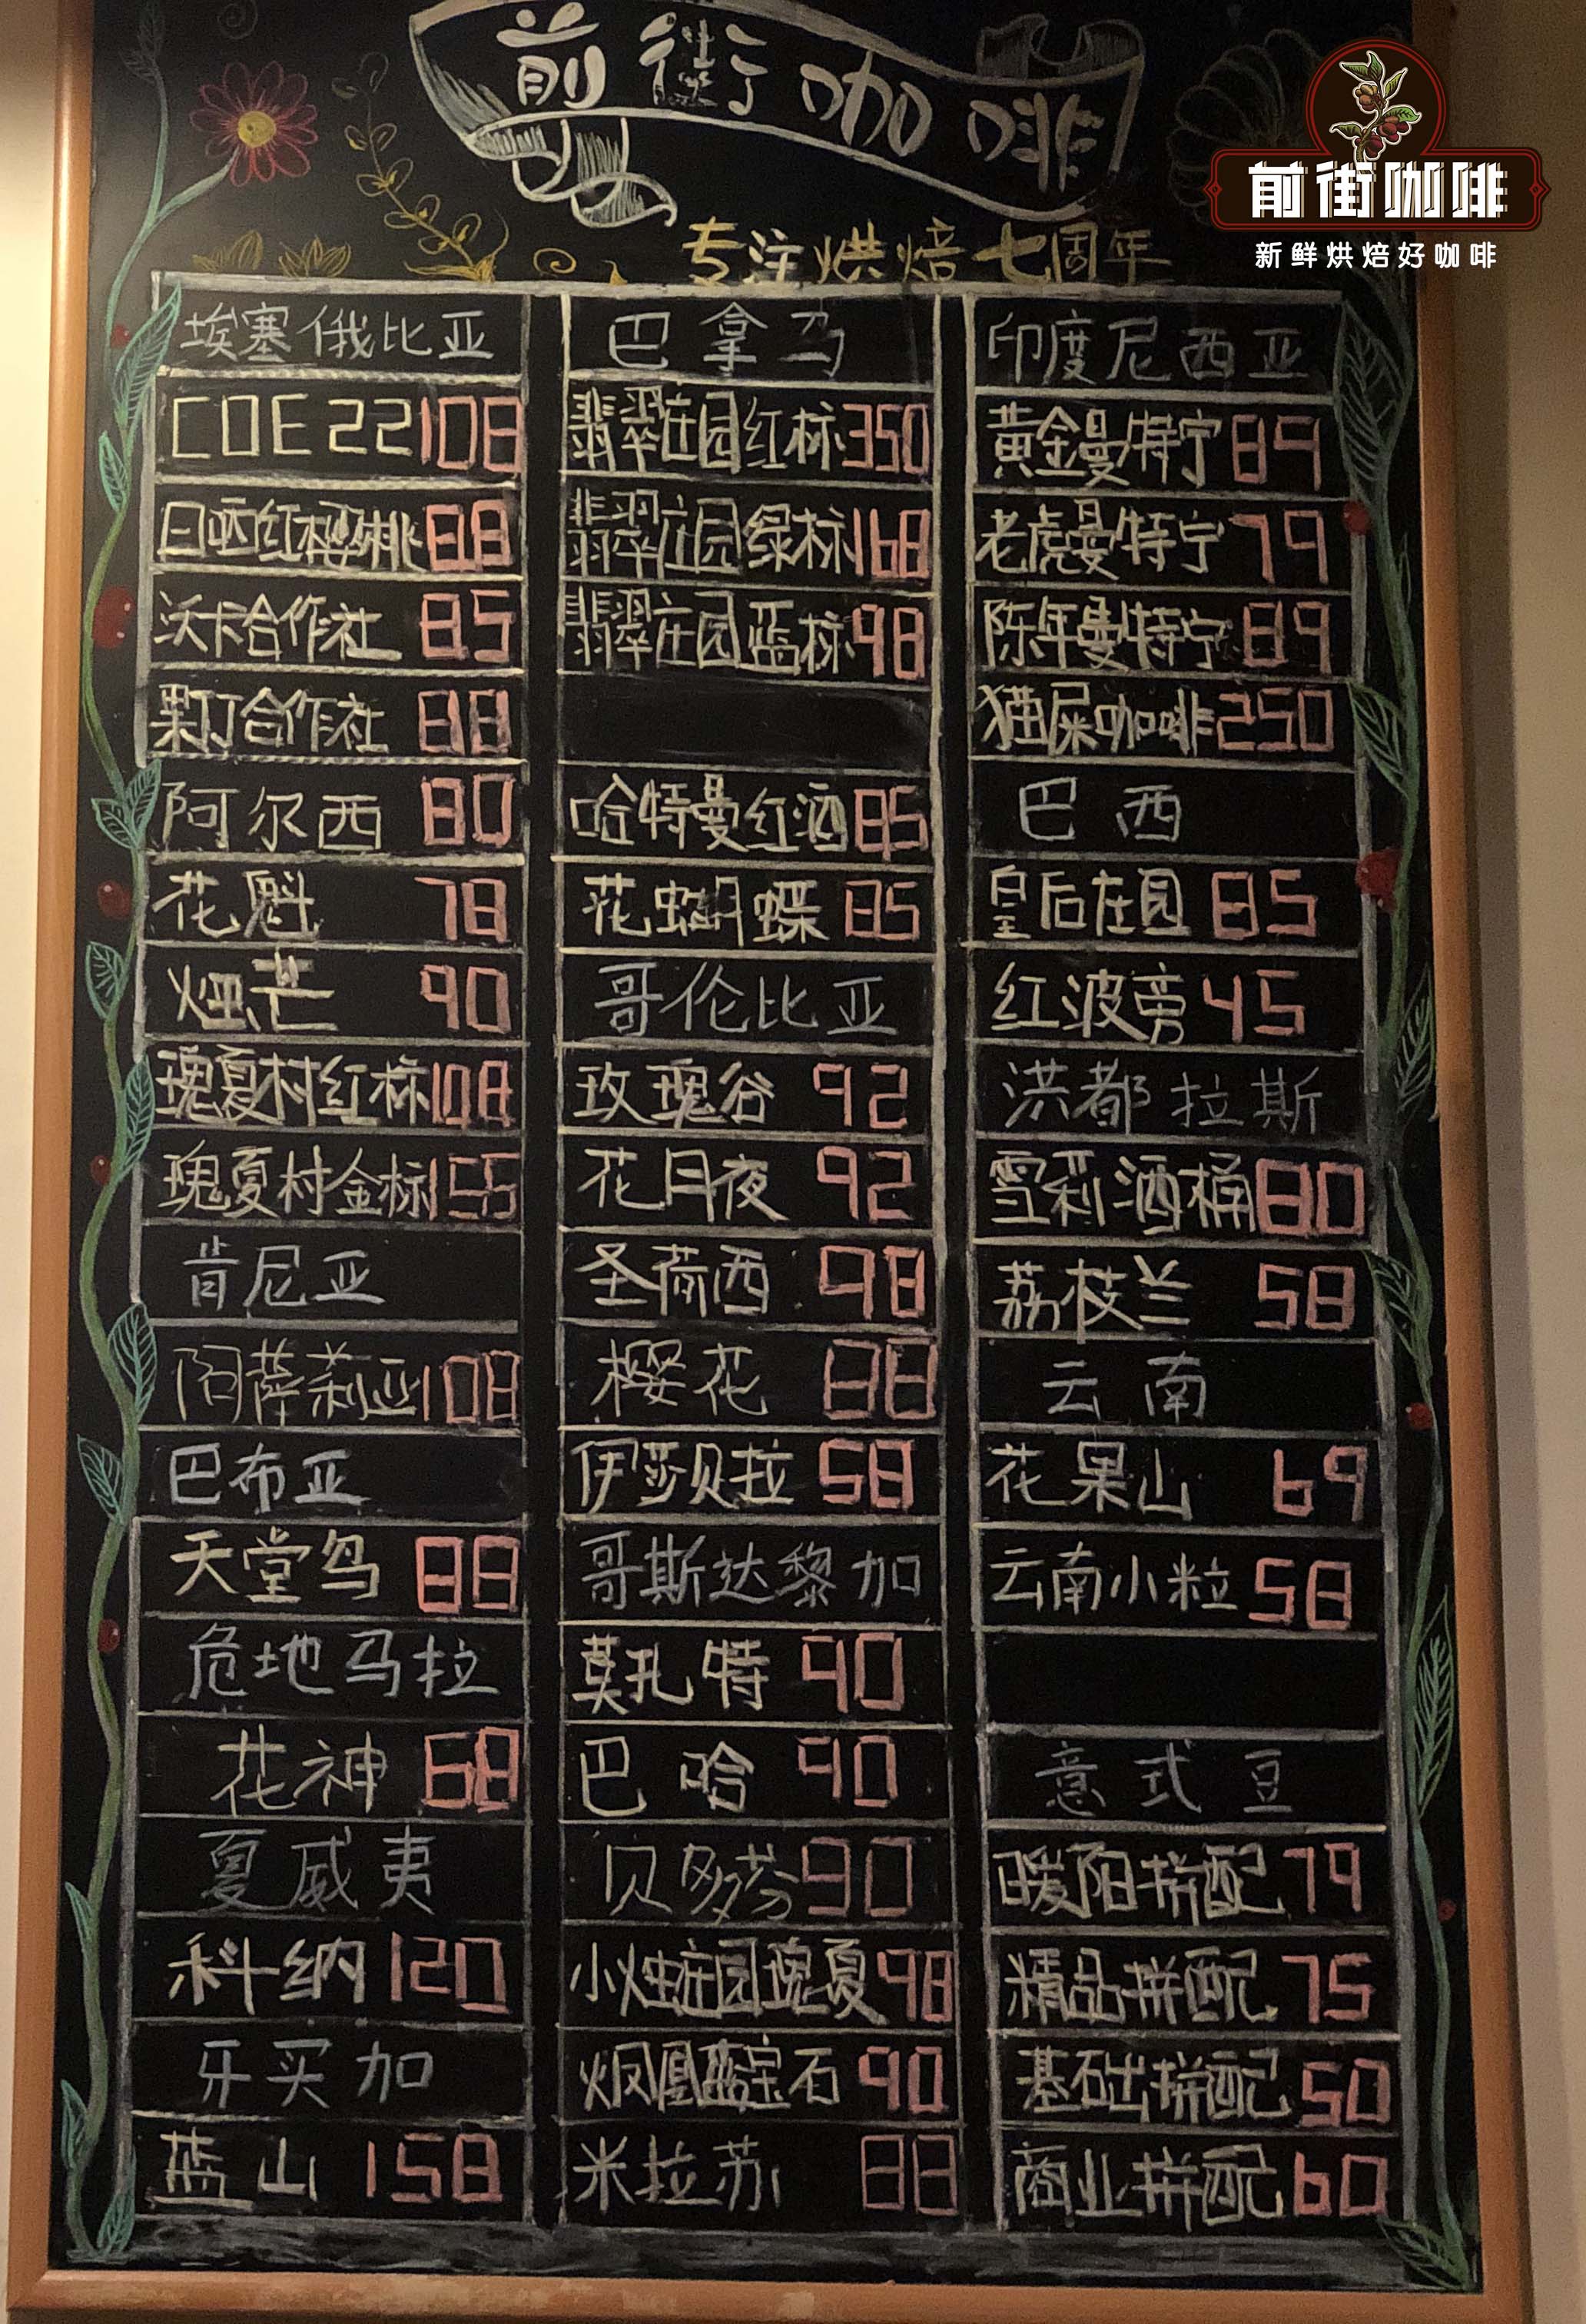 前街咖啡
前街咖啡
新鲜烘焙好咖啡
专注烘焙七周年
埃塞俄比亚
COE22 108
日晒红樱桃 88
沃卡合作社 85
果丁合作社 88
阿尔西 80
花魁 78
烟芒 90
瑰夏村红标 108
瑰夏村金标 155
肯尼亚
阿萨莉亚 108
巴布亚
天堂鸟 88
危地马拉
花神 68
夏威夷
科纳 120
牙买加
蓝山 158
巴拿马
翡翠庄园红标 350
翡翠庄园绿标 168
翡翠庄园蓝标 98
哈特曼红酒 85
花蝴蝶 85
哥伦比亚
玫瑰谷 92
花月夜 92
圣荷西 98
樱花 88
伊莎贝拉 58
哥斯达黎加
莫扎特 90
巴哈 90
贝多芬 90
小烛庄园瑰夏 98
火凤凰蓝宝石 90
米拉苏 88
印度尼西亚
黄金曼特宁 89
老虎曼特宁 79
陈年曼特宁 89
猫屎咖啡 250
巴西
皇后庄园 85
红波旁 45
洪都拉斯
雪莉酒桶 80
荔枝兰 58
云南
花果山 69
云南小粒 58
意式豆
暖阳拼配 79
精品拼配 75
基础拼配 50
商业拼配 60